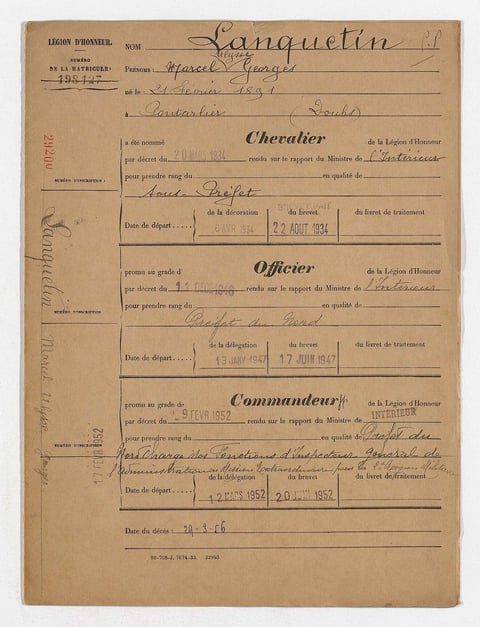 LÉGION D'HONNEUR.
NUMÉRO
DE LA MATRICULE:
198127
29200
NUMÉRO D'INSCRIPTION
NUMÉRO D'INSCRIPTION
NUMÉRO D'INSCRIPTION
Lanquetin Marcel Ulysse Georges
12 FEVR 1952
NOM Lanquetin
Ulysse
PRÉNOMS: Marcel Georges
né le 21 Février 1891
à Pontarlier (Doubs)
Chevalier
a été nommé de la Légion d'Honneur
par décret du 20 MARS 1934 rendu sur le rapport du Ministre de l'Intérieur
pour prendre rang du en qualité de
Sous-Préfet
de la décoration du brevet du livret de traitement
Date de départ..... AVR 1934 22 AOUT 1934
Officier
promu au grade d' de la Légion d'Honneur
par décret du rendu sur le rapport du Ministre de l'Intérieur
pour prendre rang du en qualité de
Préfet du Nord
de la délégation du brevet du livret de traitement
Date de départ..... 13 JANV 1947 17 JUIN 1947
Commandeur
promu au grade de de la Légion d'Honneur
par décret du 9 FEVR 1952 rendu sur le rapport du Ministre de INTERIEUR
pour prendre rang du en qualité de Préfet du
Nord Chargé des Fonctions d'Inspecteur Général de
l'Administration en Mission Extraordinaire pour la 2e Région Militaire
de la délégation du brevet du livret de traitement
Date de départ..... 12 MARS 1952 20 1952
Date du décès: 29-3-56